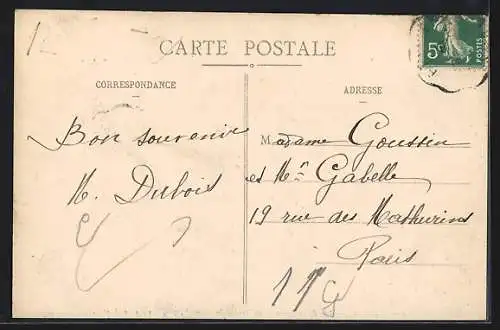 CARTE POSTALE
CORRESPONDANCE
ADRESSE
Bon souvenir
H. Dubois
Madame Goussin
et Mr Gabelle
19 rue des Mathurins
Paris
5c
POSTES